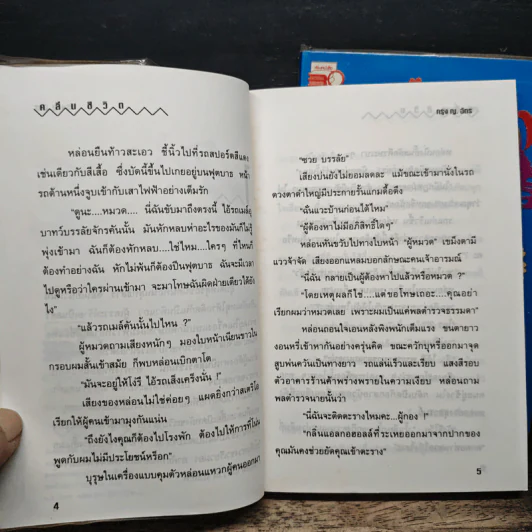 คลื่นชีวิต
หล่อนยืนท้าวสะเอว ชี้นิ้วไปที่รถสปอร์ตสีแดง
เช่นเดียวกับสีเสื้อ ซึ่งบัดนี้ขึ้นไปเกยอยู่บนฟุตบาธ หน้า
รถด้านหนึ่งจูบเข้ากับเสาไฟฟ้าอย่างเต็มรัก
"ดูนะ....หมวด.... นี่ฉันขับมาถึงตรงนี้ ไอ้รถเมล์
บาทว์บรรลัยจักรคันนั้น มันหักหลบห่าอะไรของมันก็ไม่รู้
พุ่งเข้ามา ฉันก็ต้องหักหลบ....ใช่ไหม....ใครๆ ที่ไหนก็
ต้องทำอย่างฉัน หักไม่พ้นก็ต้องปีนฟุตบาธ ฉันจะมีเวลา
ไปดูหรือว่าใครผ่านเข้ามา จะมาโทษฉันผิดฝ่ายเดียวได้ยัง
ไง"
"แล้วรถเมล์คันนั้นไปไหน ?"
ผู้หมวดถามเสียงหนักๆ มองใบหน้าเนียนขาวใน
กรอบผมสั้นเข้าสมัย ก็พบหล่อนเบิกตาโต
"มันจะอยู่ให้โง่รึ ไอ้รถเส็งเคร็งนั่น !"
เสียงของหล่อนไม่ใช่ค่อยๆ แผดยิ่งกว่าสเตริโอ
เรียกให้ผู้คนเข้ามามุงกันแน่น
"ถึงยังไงคุณก็ต้องไปโรงพัก ต้องไปให้การที่โน่น
พูดกับผมไม่มีประโยชน์หรือก"
บุรุษในเครื่องแบบคุมตัวหล่อนแหวกผู้คนออกมา
4
ครุษ ญ. ฉัตร
"ซวย บรรลัย"
เสียงบ่นยังไม่ยอมลดละ แม้ขณะเข้ามานั่งในรถ
ดวงตาดำใหญ่มีประกายรั้นแกมดื้อดึง
"ฉันแวะบ้านก่อนได้ไหม"
"ผู้ต้องหาไม่มีอภิสิทธิ์ใดๆ"
หล่อนหันขวับไปทางใบหน้า "ผู้หมวด" เขม็งตามี
แววจ้าจัด เสียงออกแหลมบอกลักษณะคนเจ้าอารมณ์
"นี่ฉัน กลายเป็นผู้ต้องหาไปแล้วหรือหมวด ?"
"โดยเหตุผลก็ใช่....แต่ขอโทษเถอะ....คุณอย่า
เรียกผมว่าหมวดเลย เพราะผมเป็นแค่พลตำรวจธรรมดา"
หล่อนถอนใจเอนหลังพิงพนักเต็มแรง ขนตายาว
งอนหรี่เข้าหากันอย่างครุ่นคิด ขณะควักบุหรี่ออกมาจุด
สูบพ่นควันเป็นทางยาว รถแล่นเร็วและเรียบ แสงสีรอบ
ตัวอาคารร้านค้าพร่างพรายในความเงียบ หล่อนถาม
พลตำรวจนายนั้นว่า
"นี่ฉันจะติดตะรางไหมคะ...ผู้กอง !"
"กลิ่นแอลกอฮอลล์ที่ระเหยออกมาจากปากของ
คุณมันคงช่วยยัดคุณเข้าตะราง"
5